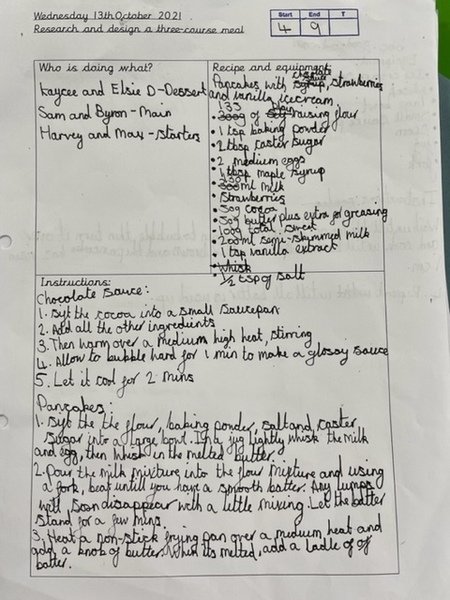 Wednesday 13th October 2021
Research and design a three-course meal
Start End T
4 9
Who is doing what?
Kaycee and Elsie D-Dessert
Sam and Byron-Main
Harvey and Max-Starters
Recipe and equipment:
chocolate
Pancakes with syrup, strawberries
and vanilla icecream
135 plain
• 300g of self raising flour
• 1 tsp baking powder
• 2 tbsp caster sugar
• 2 medium eggs
• 1 tbsp maple syrup
• 300ml milk
• Strawberries
• 50g cocoa
• 50g butter plus extra for greasing
• 100g total sweet
• 200ml semi-skimmed milk
• 1 tsp vanilla extract
• Whisk
• ½ tsp of salt
Instructions:
Chocolate sauce:
1. Syft the cocoa into a small saucepan
2. Add all the other ingredients
3. Then warm over a medium high heat, stirring
4. Allow to bubble hard for 1 min to make a glossy sauce
5. Let it cool for 2 mins
Pancakes:
1. Syft the the flour, baking powder, salt and caster
sugar into a large bowl. In a jug lightly whisk the milk
and egg, then whisk in the melted butter.
2. Pour the milk mixture into the flour mixture and using
a fork, beat untill you have a smooth batter. Any lumps
will soon disappear with a little mixing. Let the batter
stand for a few mins.
3. Heat a non-stick frying pan over a medium heat and
add a knob of butter. When its melted, add a ladle of of
batter.